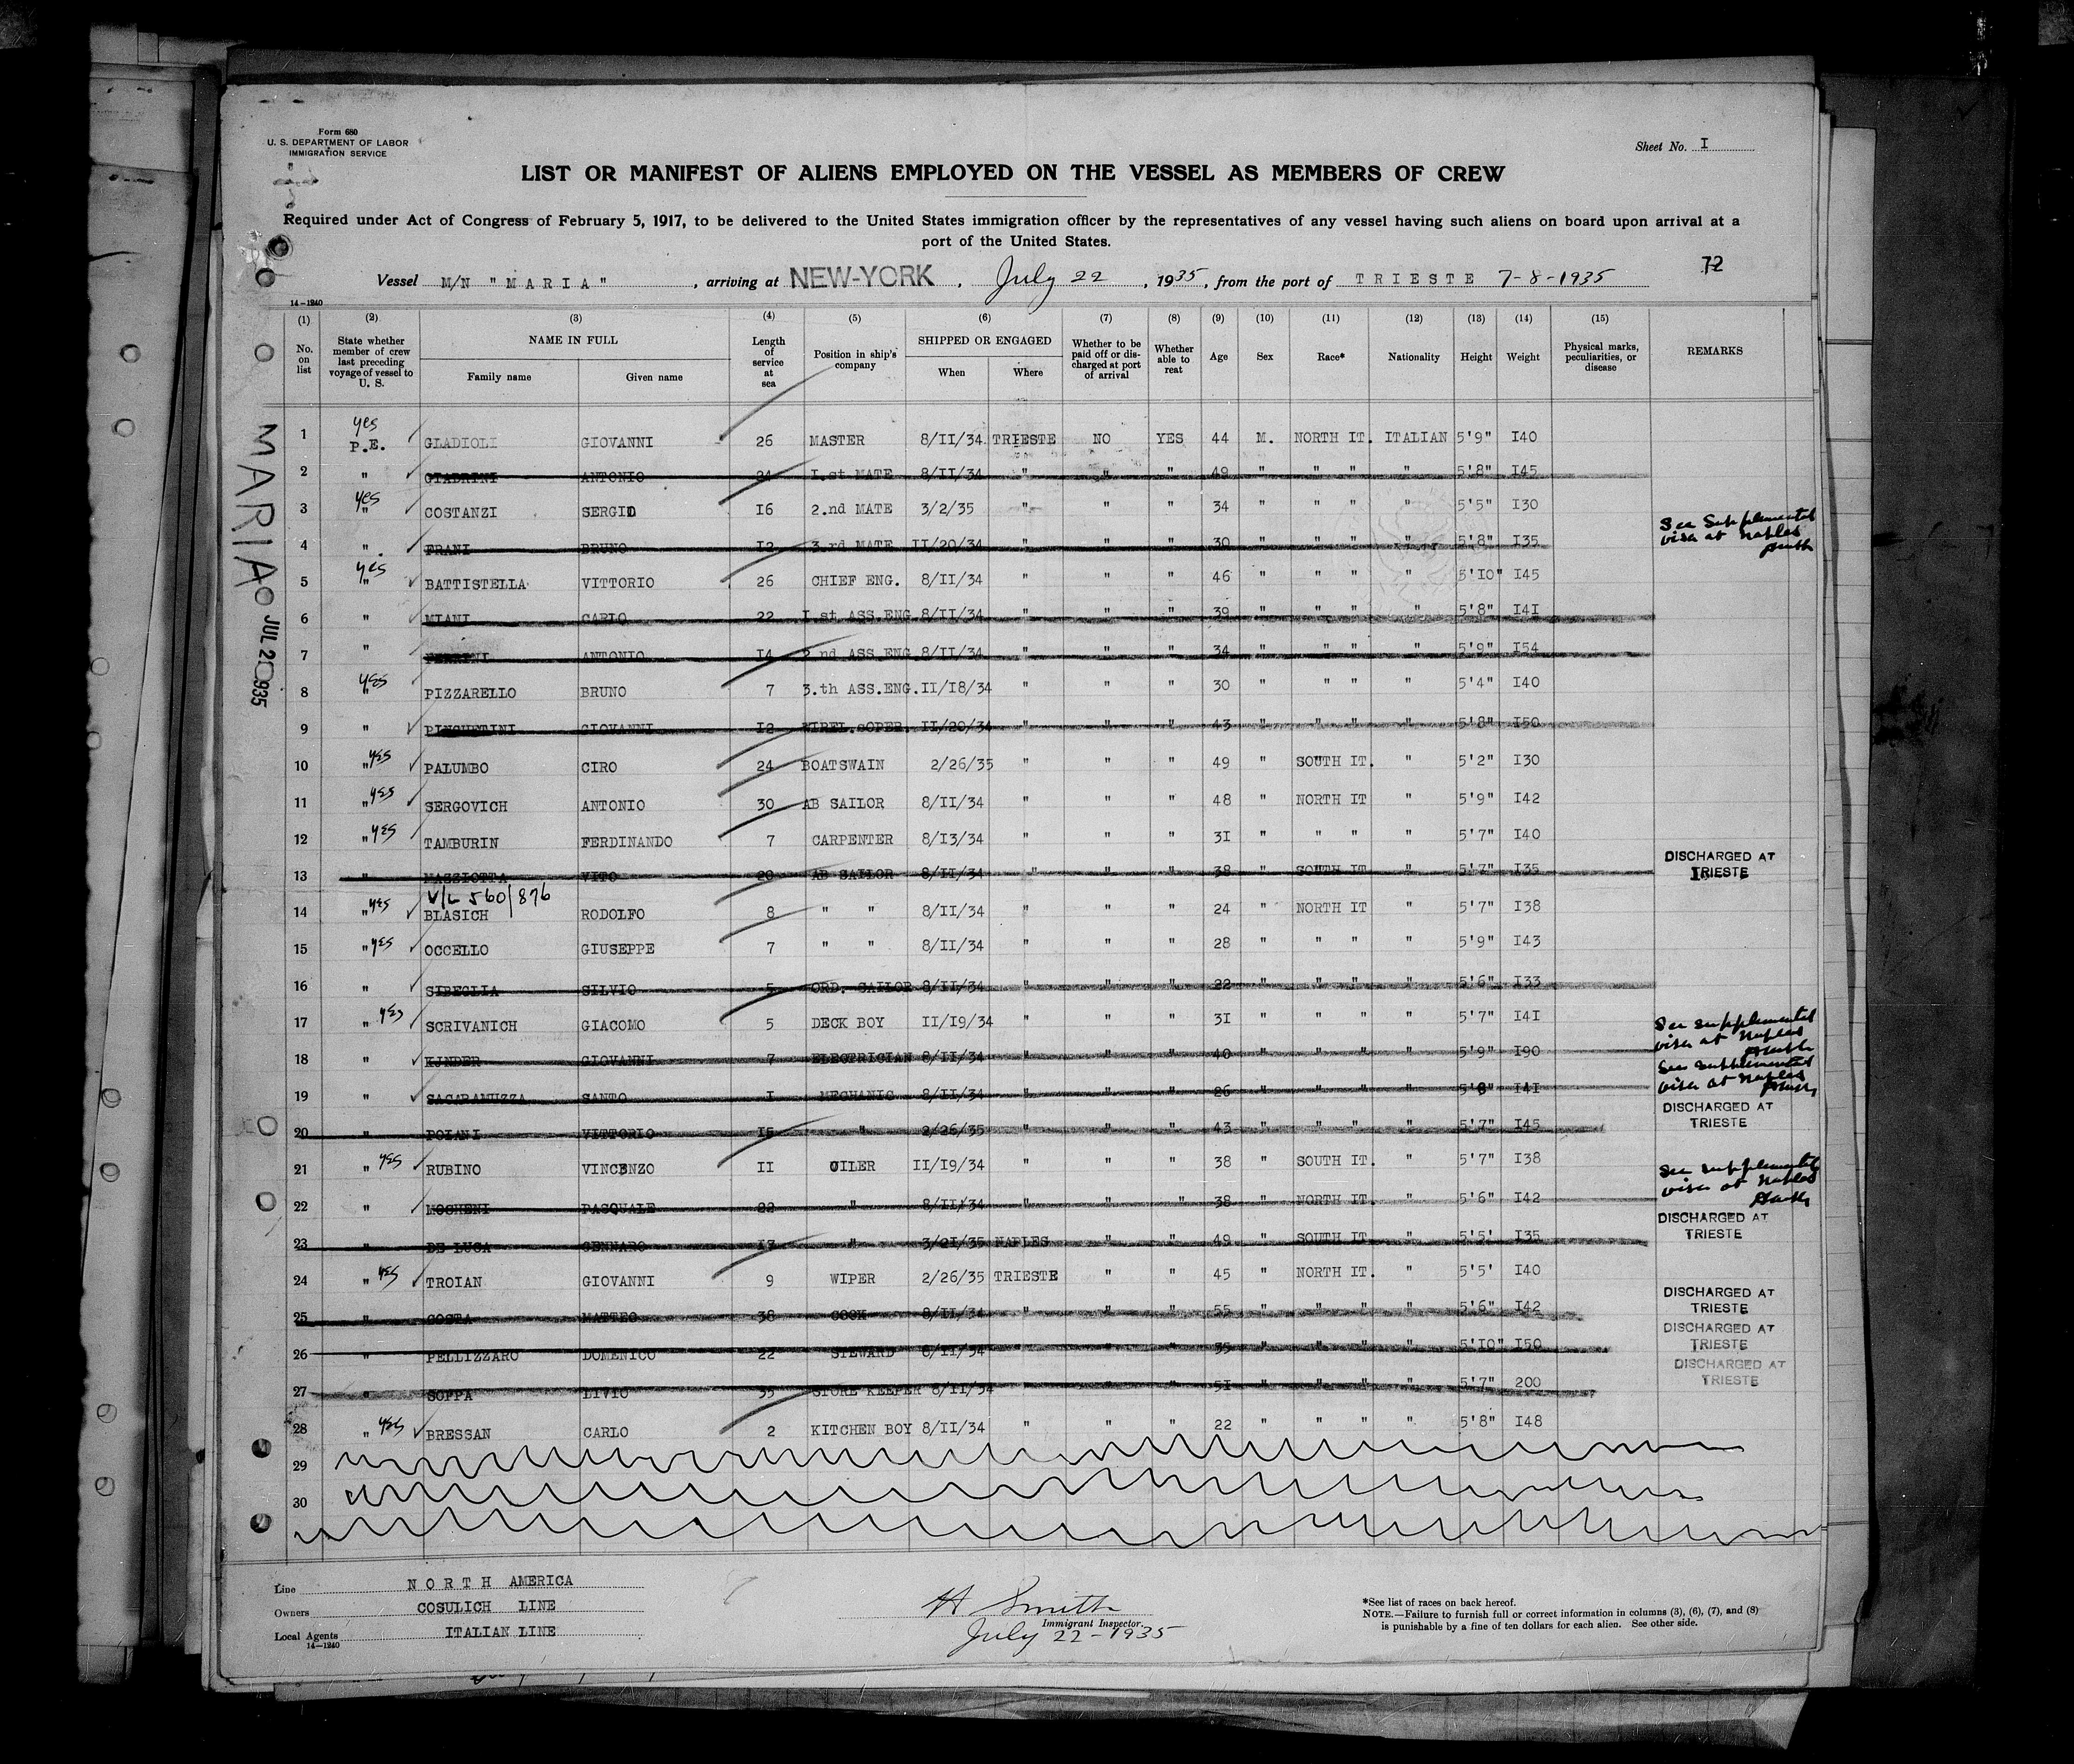 Form 680
U. S. DEPARTMENT OF LABOR
IMMIGRATION SERVICE
Sheet No. I
LIST OR MANIFEST OF ALIENS EMPLOYED ON THE VESSEL AS MEMBERS OF CREW
Required under Act of Congress of February 5, 1917, to be delivered to the United States immigration officer by the representatives of any vessel having such aliens on board upon arrival at a
port of the United States.
72
Vessel M/N "MARIA", arriving at NEW-YORK, July 22, 1935, from the port of TRIESTE 7-8-1935
14-1240
(1) (2) (3) (4) (5) (6) (7) (8) (9) (10) (11) (12) (13) (14) (15)
No. on list State whether member of crew last preceding voyage of vessel to U. S. NAME IN FULL Family name Given name Length of service at sea Position in ship's company SHIPPED OR ENGAGED When Where Whether to be paid off or discharged at port of arrival Whether able to reat Age Sex Race* Nationality Height Weight Physical marks, peculiarities, or disease REMARKS
1 yes P.E. GLADIOLI GIOVANNI 26 MASTER 8/II/34 TRIESTE NO YES 44 M. NORTH IT. ITALIAN 5'9" I40
2 " ANTONIO 24 I.st MATE 8/II/34 " " " 49 " " " " 5'8" I45
3 yes " COSTANZI SERGIO I6 2.nd MATE 3/2/35 " " " 34 " " " " 5'5" I30
4 " FRANI BRUNO I2 3.rd MATE II/20/34 " " " 30 " " " " 5'8" I35 See Supplemental visa at Naples
5 yes " BATTISTELLA VITTORIO 26 CHIEF ENG. 8/II/34 " " " 46 " " " " 5'I0" I45
6 " MIANI CARLO 22 I.st ASS.ENG. 8/II/34 " " " 39 " " " " 5'8" I4I
7 " ANTONIO I4 2.nd ASS.ENG. 8/II/34 " " " 34 " " " " 5'9" I54
8 yes " PIZZARELLO BRUNO 7 3.th ASS.ENG. II/I8/34 " " " 30 " " " " 5'4" I40
9 " GIOVANNI I2 WIREL.SOPER. II/20/34 " " " 43 " " " " 5'8" I50
10 " yes PALUMBO CIRO 24 BOATSWAIN 2/26/35 " " " 49 " SOUTH IT. " 5'2" I30
11 " yes SERGOVICH ANTONIO 30 AB SAILOR 8/II/34 " " " 48 " NORTH IT " 5'9" I42
12 " yes TAMBURIN FERDINANDO 7 CARPENTER 8/I3/34 " " " 3I " " " " 5'7" I40
13 " MAZZIOTTA VITO 20 AB SAILOR 8/II/34 " " " 38 " SOUTH IT " 5'7" I35 DISCHARGED AT TRIESTE
V/L 560/876
14 " yes BLASICH RODOLFO 8 " " 8/II/34 " " " 24 " NORTH IT " 5'7" I38
15 " yes OCCELLO GIUSEPPE 7 " " 8/II/34 " " " 28 " " " " 5'9" I43
16 " SIBEGLIA SILVIO 5 ORD. SAILOR 8/II/34 " " " 22 " " " " 5'6" I33
17 " yes SCRIVANICH GIACOMO 5 DECK BOY II/I9/34 " " " 3I " " " " 5'7" I4I See supplemental visa at Naples
18 " KINDER GIOVANNI 7 ELECTRICIAN 8/II/34 " " " 40 " " " " 5'9" I90 See supplemental visa at Naples
19 " SACARAMUZZA SANTO I MECHANIC 8/II/34 " " " 26 " " " " 5'8" I4I
20 " POIANI VITTORIO I5 " 2/26/35 " " 43 " " " " 5'7" I45 DISCHARGED AT TRIESTE
21 " yes RUBINO VINCENZO II OILER II/I9/34 " " " 38 " SOUTH IT. " 5'7" I38
22 " MOCHENI PASQUALE 22 " 8/II/34 " " " 38 " NORTH IT. " 5'6" I42 See supplemental visa at Naples
23 " DE LUCA GENNARO I7 " 3/2I/35 NAPLES " " 49 " SOUTH IT " 5'5' I35 DISCHARGED AT TRIESTE
24 " yes TROIAN GIOVANNI 9 WIPER 2/26/35 TRIESTE " " 45 " NORTH IT. " 5'5' I40
25 " COSTA MATTEO 38 COOK 8/II/34 " " " 55 " " " " 5'6" I42 DISCHARGED AT TRIESTE
26 " PELLIZZARO DOMENICO 22 STEWARD 8/II/34 " " " 35 " " " " 5'I0" I50 DISCHARGED AT TRIESTE
27 " SOPPA LIVIO 35 STORE KEEPER 8/II/34 " " 5I " " " " 5'7" 200 DISCHARGED AT TRIESTE
28 " yes BRESSAN CARLO 2 KITCHEN BOY 8/II/34 " " " 22 " " " " 5'8" I48
29
30
MARIA
JUL 2 1935
Line NORTH AMERICA
Owners COSULICH LINE
Local Agents ITALIAN LINE
14-1240
H Smith
Immigrant Inspector.
July 22-1935
*See list of races on back hereof.
NOTE.—Failure to furnish full or correct information in columns (3), (6), (7), and (8)
is punishable by a fine of ten dollars for each alien. See other side.